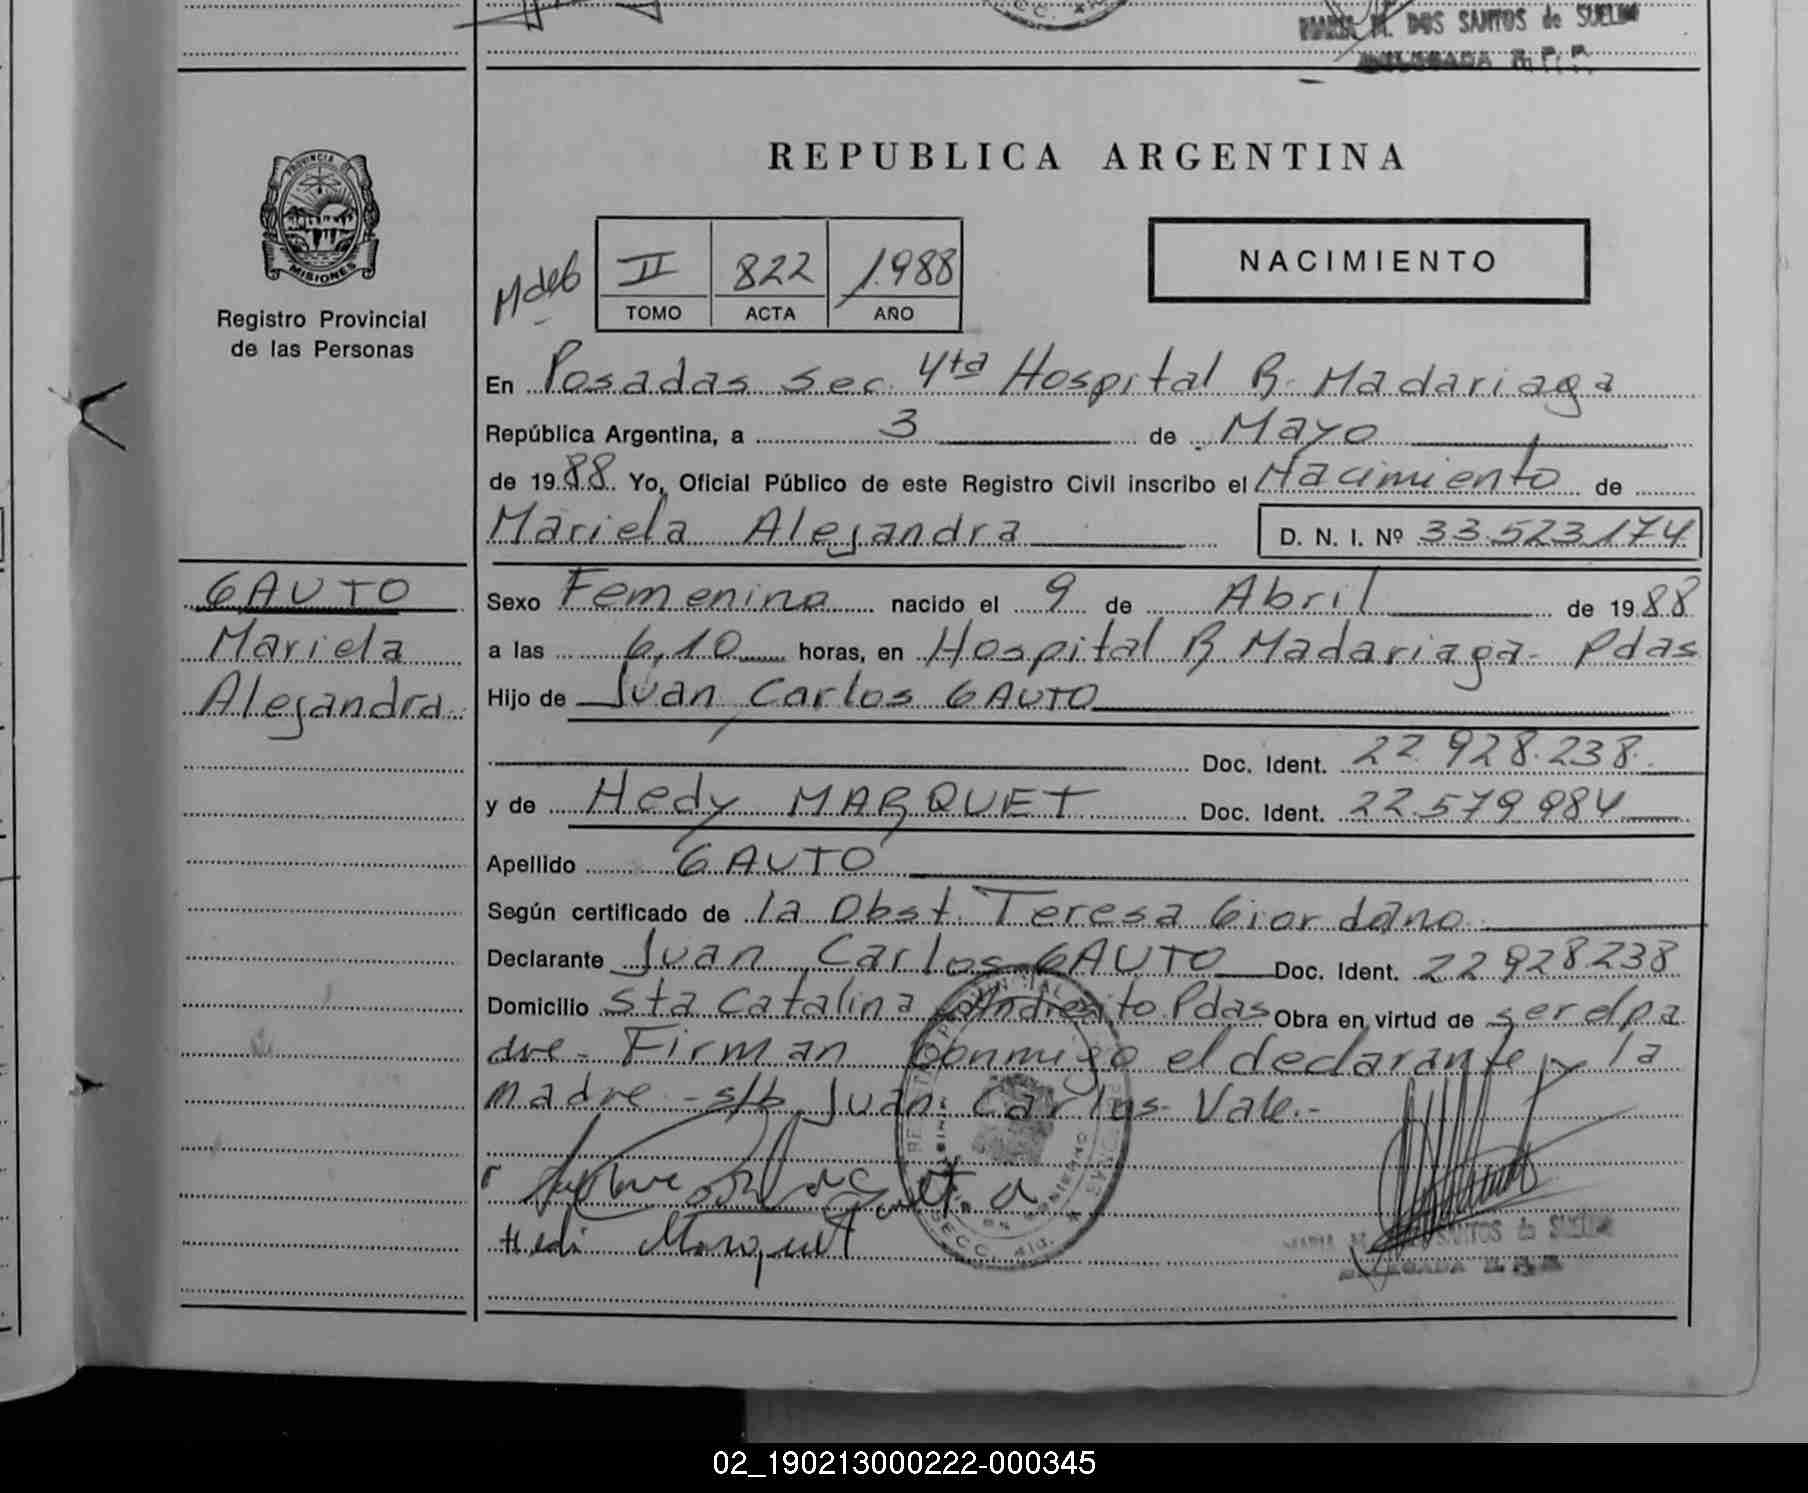 MARIA M. DOS SANTOS de SUELDO
DELEGADA R.P.P.
PROVINCIA DE
MISIONES
Registro Provincial
de las Personas
REPUBLICA ARGENTINA
Mdeb
II 822 1.988
TOMO ACTA AÑO
NACIMIENTO
En Posadas sec. 4ta Hospital R. Madariaga
República Argentina, a 3 de Mayo
de 1988 Yo, Oficial Público de este Registro Civil inscribo el Nacimiento de
Mariela Alejandra D. N. I. Nº 33.523.174
GAUTO
Mariela
Alejandra
Sexo Femenino nacido el 9 de Abril de 1988
a las 6,10 horas, en Hospital R. Madariaga - Pdas
Hijo de Juan Carlos GAUTO
Doc. Ident. 22.928.238.
y de Hedy MARQUET Doc. Ident. 22.579.984
Apellido GAUTO
Según certificado de la Obst. Teresa Giordano
Declarante Juan Carlos GAUTO Doc. Ident. 22928238
Domicilio Sta Catalina Andresito Pdas Obra en virtud de ser el pa
dre - Firman conmigo el declarante y la
madre - s/b Juan Carlos - Vale. -
Hedi Marquet
SECC. 4ta.
MARIA M. DOS SANTOS de SUELDO
DELEGADA R.P.P.
02_190213000222-000345